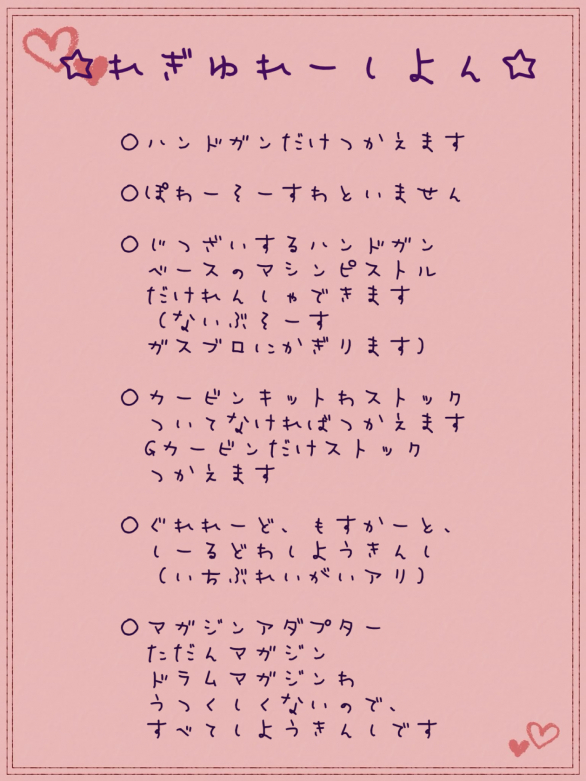 ☆れぎゅれーしょん☆
○ハンドガンだけつかえます
○ぽわーそーすわといません
○じつざいするハンドガン
ベースのマシンピストル
だけれんしゃできます
(ないぶそーす
ガスブロにかぎります)
○カービンキットわストック
ついてなければつかえます
Gカービンだけストック
つかえます
○ぐれれーど、もすかーと、
しーるどわしようきんし
(いちぶれいがいアリ)
○マガジンアダプター
ただんマガジン
ドラムマガジンわ
うつくしくないので、
すべてしようきんしです